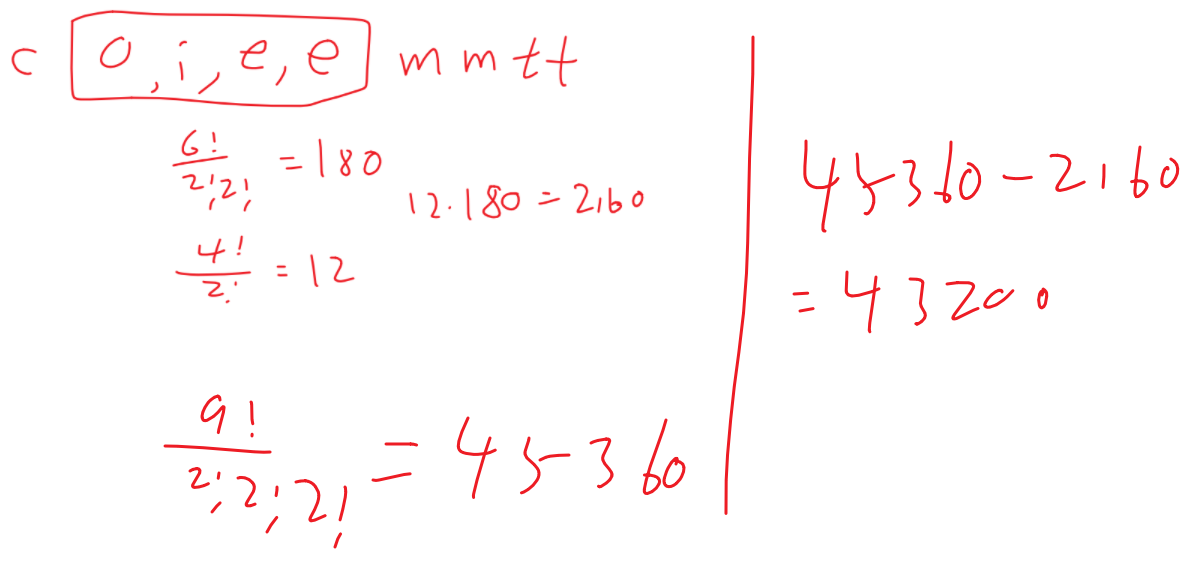 c o, i, e, e m m t t
6! / 2!,2! = 180
12.180 = 2160
4! / 2! = 12
9! / 2!,2!,2! = 45360
45360 - 2160
= 43200